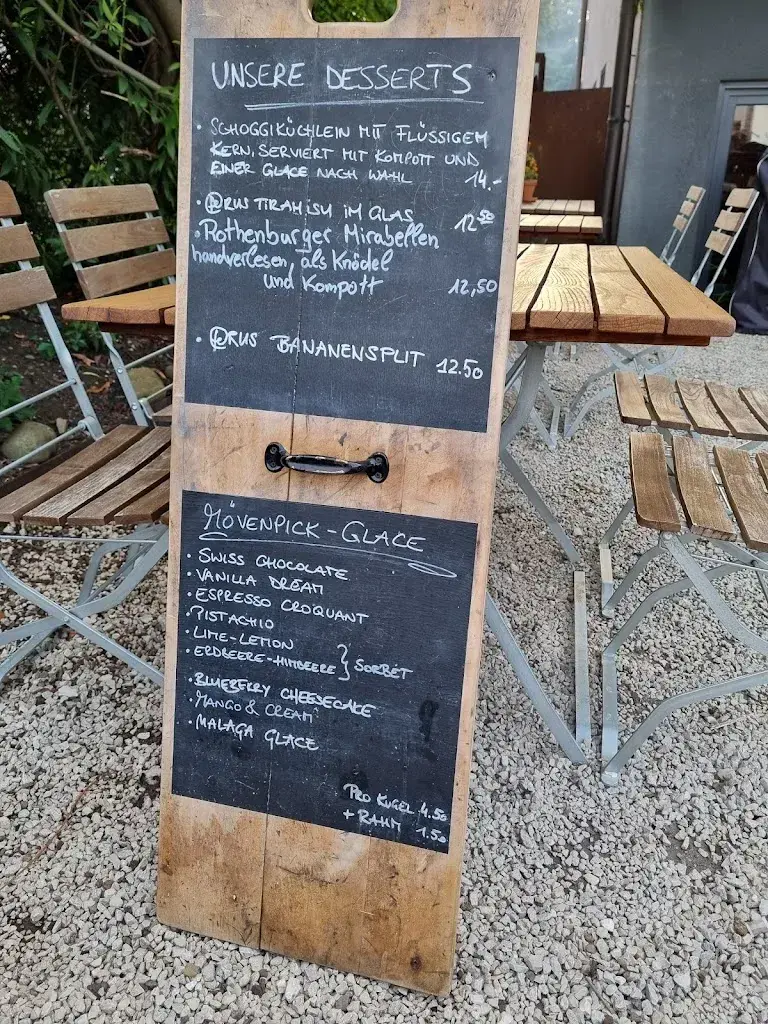 UNSERE DESSERTS
• SCHOGGIKÜCHLEIN MIT FLÜSSIGEM
KERN, SERVIERT MIT KOMPOTT UND
EINER GLACE NACH WAHL 14.-
• TIRAMISU IM GLAS 12.50
• Rothenburger Mirabellen
handverlesen, als Knödel
und Kompott 12,50
• BANANENSPLIT 12.50
MÖVENPICK-GLACE
• SWISS CHOCOLATE
• VANILLA DREAM
• ESPRESSO CROQUANT
• PISTACHIO
• LIME-LEMON
• ERDBEERE-HIMBEERE } SORBET
• BLUEBERRY CHEESECAKE
• MANGO & CREAM
• MALAGA GLACE
PRO KUGEL 4.50
+ RAHM 1.50